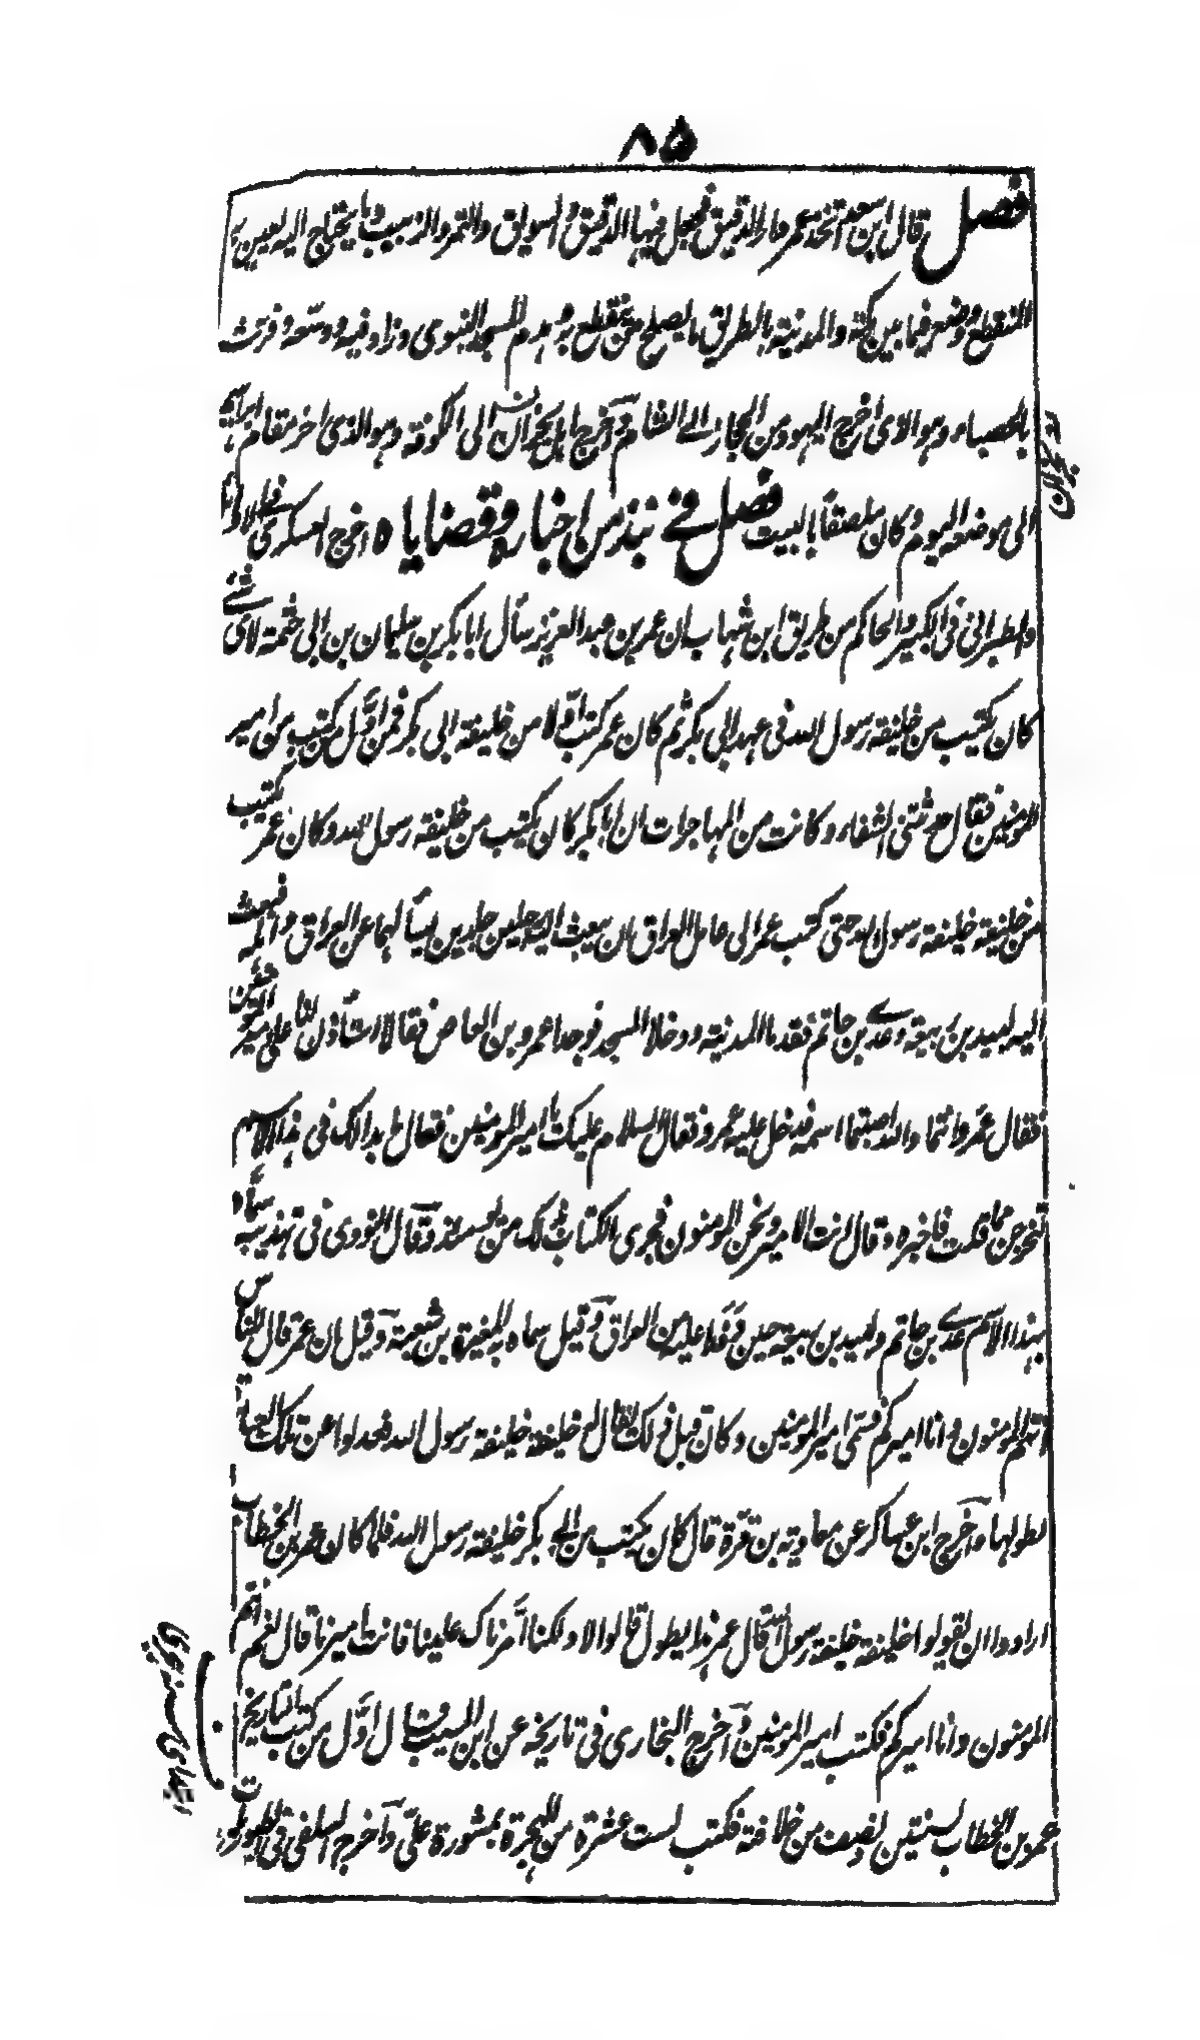 ٨٥
فصل قال ابن سعد اتخذ عمر دار الدقيق فجعل فيها الدقيق والسويق والتمر والزبيب وما يحتاج اليه يعين به
المنقطع ووضع فيما بين مكة والمدينة بالطريق ما يصلح من ينقطع به وهدم المسجد النبوى وزاد فيه ووسعه وفرشه
بالحصباء وهو الذى اخرج اليهود من الحجاز الى الشام وآخرج اهل نجران الى الكوفة وهو الذى اخر مقام ابراهيم
الى موضعه اليوم وكان ملصقا بالبيت فصل فى نبذ من اخباره وقضاياه اخرج العسكرى فى الاوائل
والطبرانى فى الكبير والحاكم من طريق ابن شهاب ان عمر بن عبد العزيز سأل ابا بكر بن سليمان بن ابى حثمة لاى شئ
كان يكتب من خليفة رسول الله فى عهد ابى بكر ثم كان عمر كتب اولا من خليفة ابى بكر فمن اول من كتب من امير
المومنين فقال حدثتنى الشفاء وكانت من المهاجرات ان ابا بكر كان يكتب من خليفة رسول الله وكان عمر يكتب
من خليفة خليفة رسول الله حتى كتب عمر الى عامل العراق ان يبعث اليه رجلين جلدين يسألهما عن العراق واهله فبعث
اليه لبيد بن ربيعة وعدى بن حاتم فقدما المدينة ودخلا المسجد فوجدا عمرو بن العاص فقالا استأذن لنا على امير المومنين
فقال عمرو انتما والله اصبتما اسمه فدخل عليه عمرو فقال السلام عليك يا امير المومنين فقال ما بدا لك فى هذا الاسم
لتخرجن مما قلت فاخبره وقال انت الامير ونحن المومنون فجرى الكتاب بذلك من يومئذ وقال النووى فى تهذيبه سماه
بهذا الاسم عدى بن حاتم ولبيد بن ربيعة حين وفدا عليه من العراق وقيل سماه به المغيرة بن شعبة وقيل ان عمر قال للناس
انتم المومنون وانا اميركم فسمى امير المومنين وكان قبل ذلك يقال له خليفة خليفة رسول الله فعدلوا عن تلك العبارة
لطولها وآخرج ابن عساكر عن معاوية بن قرة قال كان يكتب من ابى بكر خليفة رسول الله فلما كان عمر بن الخطاب
ارادوا ان يقولوا خليفة خليفة رسول الله قال عمر هذا يطول قالوا لا ولكنا امرناك علينا فانت اميرنا قال نعم انتم
المومنون وانا اميركم فكتب امير المومنين وآخرج البخارى فى تاريخه عن ابن المسيب قال اول من كتب التاريخ
عمر بن الخطاب لسنتين ونصف من خلافته فكتب لست عشرة من الهجرة بمشورة على وآخرج السلفى فى الطيوريات